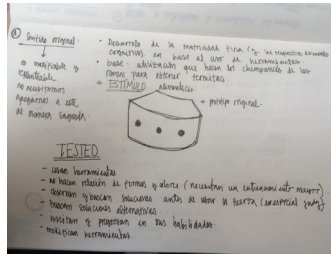 ① Sentido original.
↓
es modificable y replanteable
no necesitamos apegarnos a este de manera sagrada.
• Desarrollo de la motricidad fina (y su respectivo desarrollo
cognitivo), en base al uso de herramientas.
• base: utilización que hacen los chimpancés de las
ramas para obtener termitas.
= ESTÍMULO alimenticio
prototipo original.
TESTED
- usan herramientas
- no hacen relación de formas y colores (necesitan un entrenamiento mayor)
- observan y buscan soluciones antes de usar la fuerza (en especial Judy)
- buscan soluciones alternativas.
- insisten y progresan en sus habilidades.
- modifican herramientas.